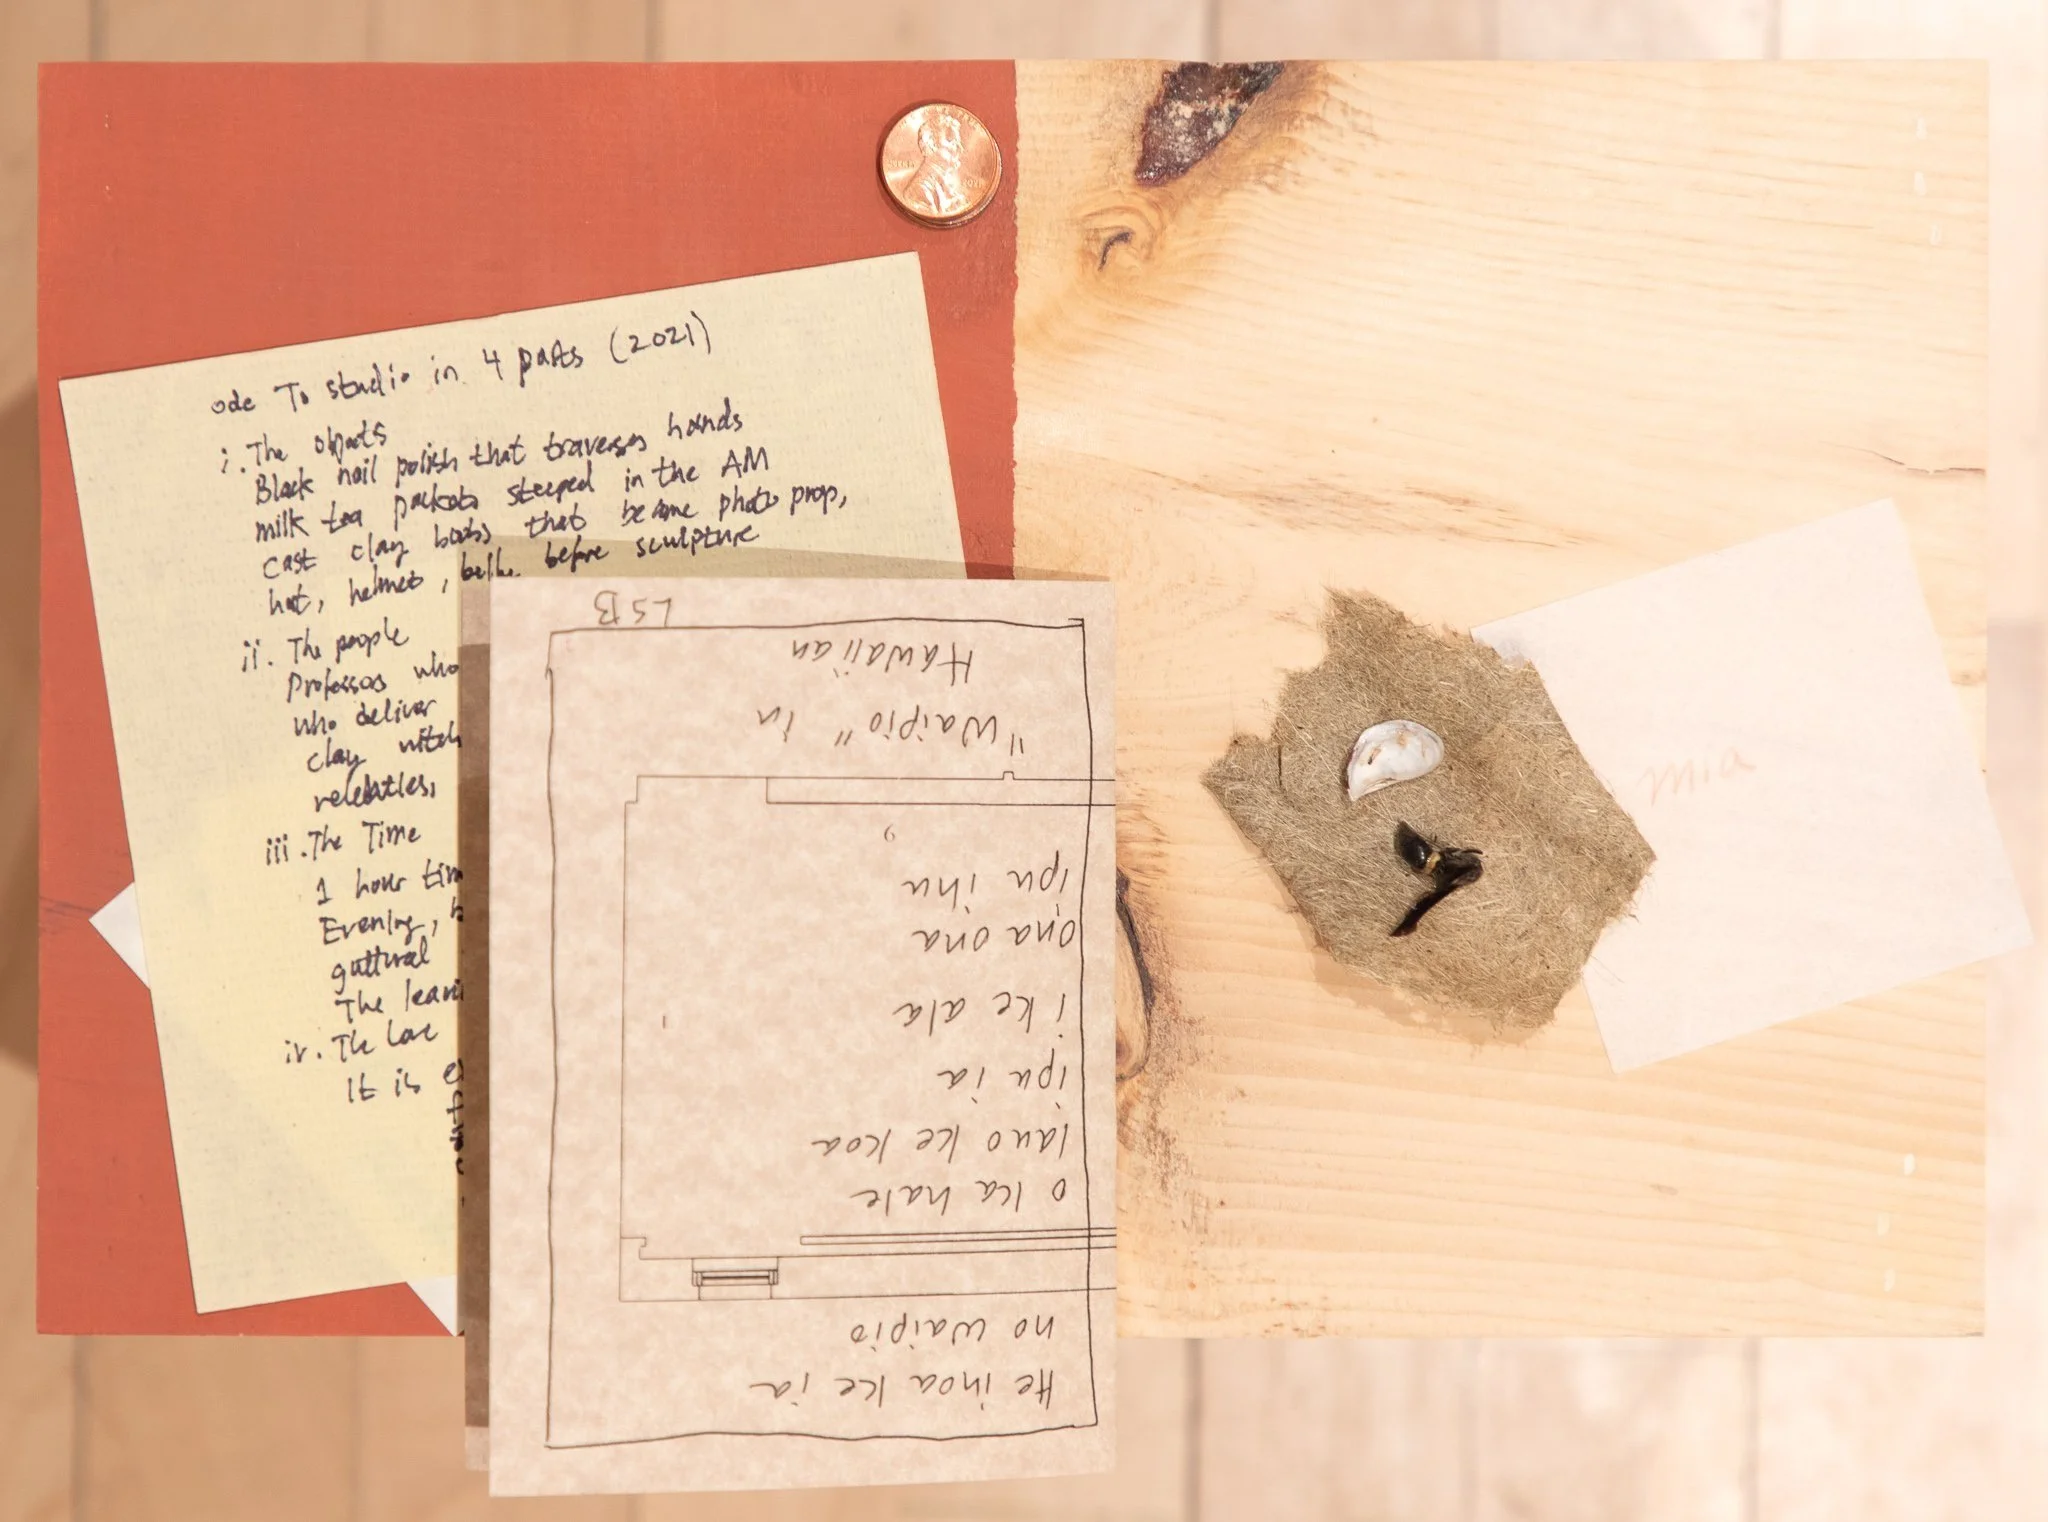 ode To studio in 4 parts (2021)
i. The objects
Black nail polish that traverses hands
milk tea packets steeped in the AM
cast clay boobs that became photo prop,
hat, helmet, before sculpture
ii. The people
Professors who
who deliver
clay
iii. The Time
1 hour
Evening,
guttural
The
iv. The Love
It is
He inoa ke ia
no waipio
o ka hale
lauo ke koa
ipu ia
i ke ala
ona ona
ipu ihu
"Waipio" in
Hawaiian
LSB
mia